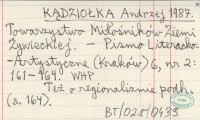 KĄDZIOŁKA Andrzej 1987.
Towarzystwo Miłośników Ziemi
Żywieckiej. – Pismo Literacko-
-Artystyczne (Kraków) 6, nr 2:
161-164. WHP
Też o regionalizmie podh.
(s. 164).
BT/0250435